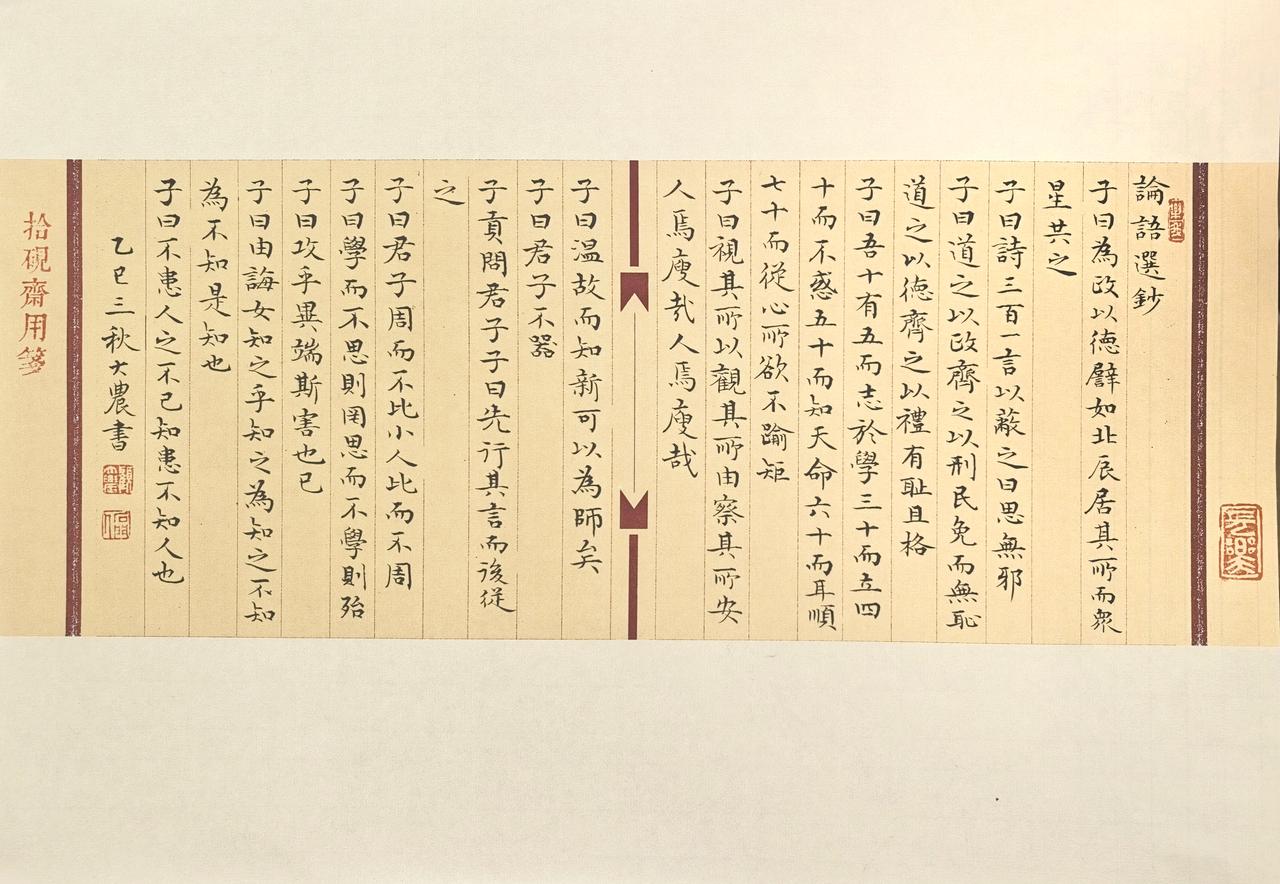 論語選鈔
子曰為政以徳譬如北辰居其所而衆
星共之
子曰詩三百一言以蔽之曰思無邪
子曰道之以政齊之以刑民免而無恥
道之以徳齊之以禮有耻且格
子曰吾十有五而志於學三十而立四
十而不惑五十而知天命六十而耳順
七十而從心所欲不踰矩
子曰視其所以觀其所由察其所安
人焉廋哉人焉廋哉
子曰温故而知新可以為師矣
子曰君子不器
子貢問君子子曰先行其言而後從
之
子曰君子周而不比小人比而不周
子曰學而不思則罔思而不學則殆
子曰攻乎異端斯害也已
子曰由誨女知之乎知之為知之不知
為不知是知也
子曰不患人之不己知患不知人也
乙巳三秋大農書
拾硯齋用箋